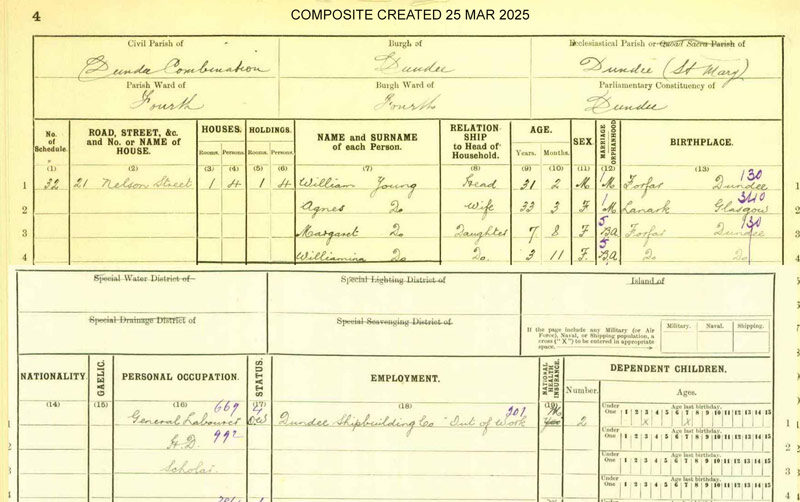 4
COMPOSITE CREATED 25 MAR 2025
Civil Parish of
Burgh of
Ecclesiastical Parish or Quoad Sacra Parish of
Dundee Combination
Dundee
Dundee (St Mary)
Parish Ward of
Burgh Ward of
Parliamentary Constituency of
Fourth
Fourth
Dundee
No. of Schedule.
ROAD, STREET, &c. and No. or NAME of HOUSE.
HOUSES.
HOLDINGS.
Rooms. Persons. Rooms. Persons.
NAME and SURNAME of each Person.
RELATIONSHIP to Head of Household.
AGE.
Years. Months.
SEX.
MARRIAGE ORPHANHOOD
BIRTHPLACE.
(1) (2) (3) (4) (5) (6) (7) (8) (9) (10) (11) (12) (13)
130
1 32 21 Nelson Street 1 4 1 4 William Young Head 31 2 M M Forfar Dundee 1
3410
2 Agnes Do Wife 33 3 F M Lanark Glasgow 2
130
3 Margaret Do Daughter 7 8 F BA Forfar Dundee 3
4 Williamina Do Do. 3 11 F. BA Do Do 4
Special Water District of
Special Lighting District of
Island of
Special Drainage District of
Special Scavenging District of
If the page include any Military (or Air Force), Naval, or Shipping population, a cross ("X") to be entered in appropriate space.
Military. Naval. Shipping.
NATIONALITY.
GAELIC.
PERSONAL OCCUPATION.
STATUS.
EMPLOYMENT.
NATIONAL HEALTH INSURANCE.
DEPENDENT CHILDREN.
Number.
Ages.
(14) (15) (16) (17) (18) (19)
Under One Age last birthday. 1 2 3 4 5 6 7 8 9 10 11 12 13 14 15
669 4 201
General Labourer Dundee Shipbuilding Co Out of Work 2 X X
G.D. 992
Under One Age last birthday. 1 2 3 4 5 6 7 8 9 10 11 12 13 14 15
Scholar
Under One Age last birthday. 1 2 3 4 5 6 7 8 9 10 11 12 13 14 15
Under Age last birthday.